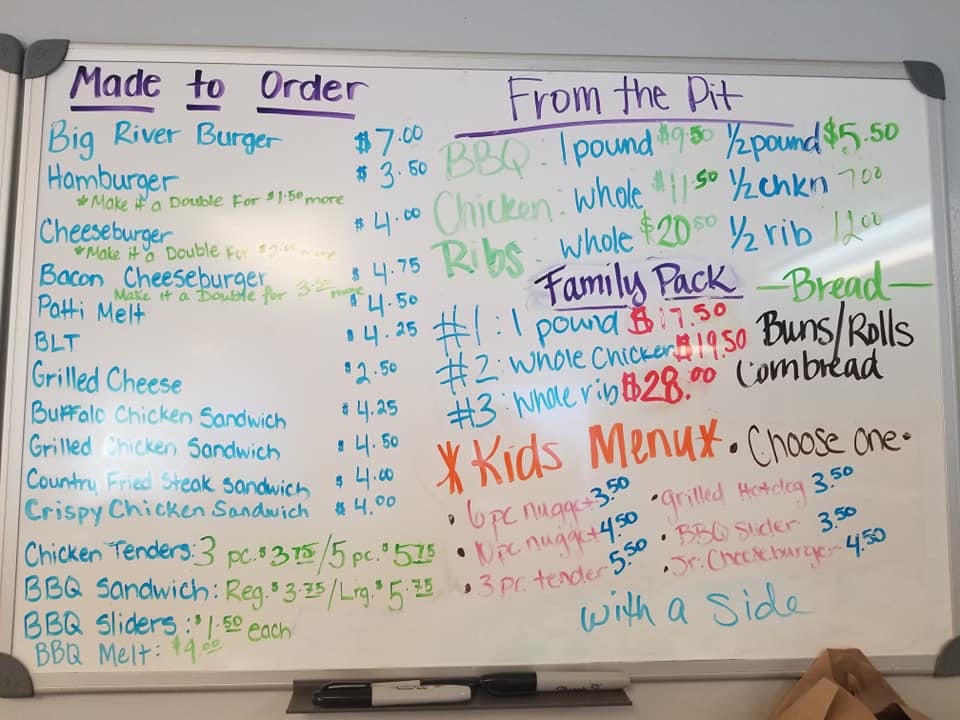 Made to Order
Big River Burger $7.00
Hamburger $3.50
*Make it a Double For $1.50 more
Cheeseburger $4.00
*Make it a Double For more
Bacon Cheeseburger $4.75
Make it a Double for 3.50 more
Patti Melt $4.50
BLT $4.25
Grilled Cheese $2.50
Buffalo Chicken Sandwich $4.25
Grilled Chicken Sandwich $4.50
Country Fried Steak Sandwich $4.00
Crispy Chicken Sandwich $4.00
Chicken Tenders: 3 pc. $3.75/5 pc. $5.75
BBQ Sandwich: Reg. $3.75/Lrg. $5.75
BBQ Sliders: $1.50 each
BBQ Melt: $4.00
From the Pit
BBQ: 1 pound $9.50 1/2 pound $5.50
Chicken: whole $11.50 1/2 chkn 7.00
Ribs: whole $20.50 1/2 rib 12.00
Family Pack
#1: 1 pound $17.50
#2: whole chicken $19.50
#3: whole rib $28.00
—Bread—
Buns/Rolls
Cornbread
*Kids Menu* •Choose one•
• 6 pc nugget 3.50
• 10 pc nugget 4.50
• 3 pc. tender 5.50
• grilled Hotdog 3.50
• BBQ Slider 3.50
• Jr. Cheeseburger 4.50
with a Side